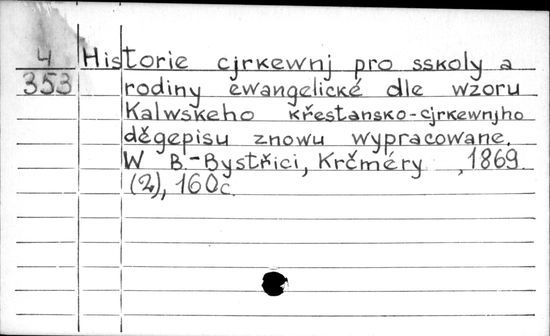 4 Historie cjrkewnj pro sskoly a
353 rodiny ewangelické dle wzoru
Kalwskeho křestansko-cjrkewnjho
děgepisu znowu wypracowane.
W B.-Bystřici, Krčméry , 1869.
(2), 160c.